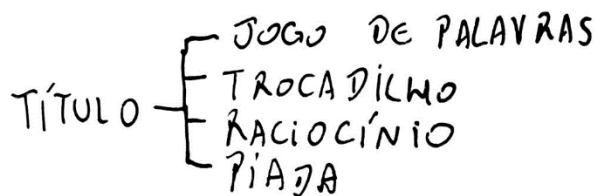 TÍTULO
JOGO DE PALAVRAS
TROCADILHO
RACIOCÍNIO
PIADA